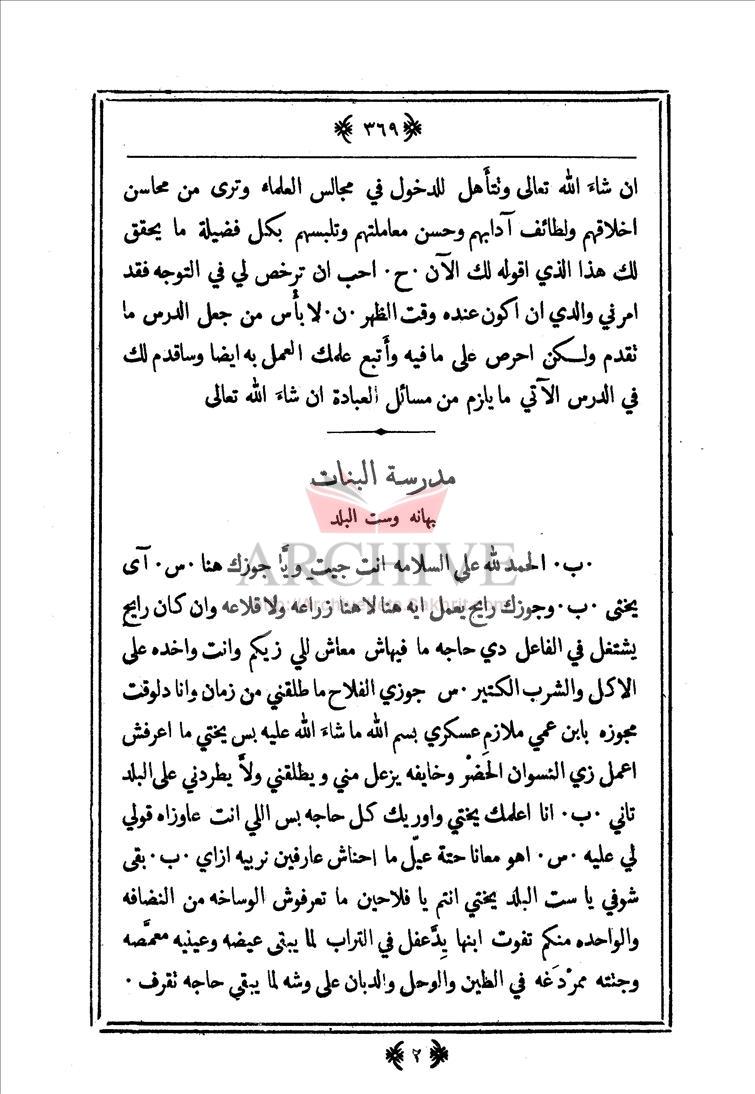 ٣٦٩
ان شاء الله تعالى وتتأهل للدخول في مجالس العلماء وترى من محاسن
اخلاقهم ولطائف آدابهم وحسن معاملتهم وتلبسهم بكل فضيلة ما يحقق
لك هذا الذي اقوله لك الآن ٠ح٠ احب ان ترخص لي في التوجه فقد
امرني والدي ان اكون عنده وقت الظهر ٠ن٠ لا بأس من جعل الدرس ما
تقدم ولكن احرص على ما فيه وأتبع علمك العمل به ايضا وساقدم لك
في الدرس الآتي ما يلزم من مسائل العبادة ان شاء الله تعالى
مدرسة البنات
بهانه وست البلد
ARCHIVE
٠ب٠ الحمد لله على السلامه انت جيت ويَّا جوزك هنا ٠س٠ آى
يختى ٠ب٠ وجوزك رايح يعمل ايه هنا لا هنا زراعه ولا قلاعه وان كان رايح
يشتغل في الفاعل دي حاجه ما فيهاش معاش للي زيكم وانت واخده على
الاكل والشرب الكتير ٠س جوزي الفلاح ما طلقني من زمان وانا دلوقت
مجوزه بابن عمي ملازم عسكري بسم الله ما شاء الله عليه بس يختي ما اعرفش
اعمل زي النسوان الحضْر وخايفه يزعل مني ويطلقني ولاَّ يطردني على البلد
تاني ٠ب٠ انا اعلمك يختي واوريك كل حاجه بس اللي انت عاوزاه قولي
لي عليه ٠س٠ اهو معانا حتة عيّل ما احناش عارفين نربيه ازاي ٠ب٠ بقى
شوفي يا ست البلد يختي انتم يا فلاحين ما تعرفوش الوساخه من النضافه
والواحده منكم تفوت ابنها يِدَّعفل في التراب لما يبتى عيضه وعينيه معمَّصه
وجتته ممرْدَغه في الطين والوحل والدبان على وشه لما يبقي حاجه تقرف ٠
٢